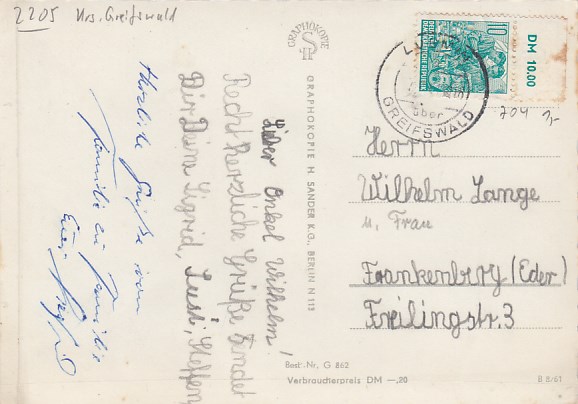 2205 Krs. Greifswald
GRAPHOKOPIE
SH
10
DEUTSCHE
DEMOKRATISCHE REPUBLIK
DM 10.00
über
GREIFSWALD
704 1,-
Lieber Onkel Wilhelm!
Recht herzliche Grüße sendet
Dir Deine Sigrid, Susi, Steffen
Herzliche Grüße von
Familie zu Familie
Euer
GRAPHOKOPIE H. SANDER K.G., BERLIN N 113
Herrn
Wilhelm Lange
u. Frau
Frankenberg (Eder)
Freilingstr. 3
Best.-Nr. G 862
Verbraucherpreis DM —,20
B 8/61